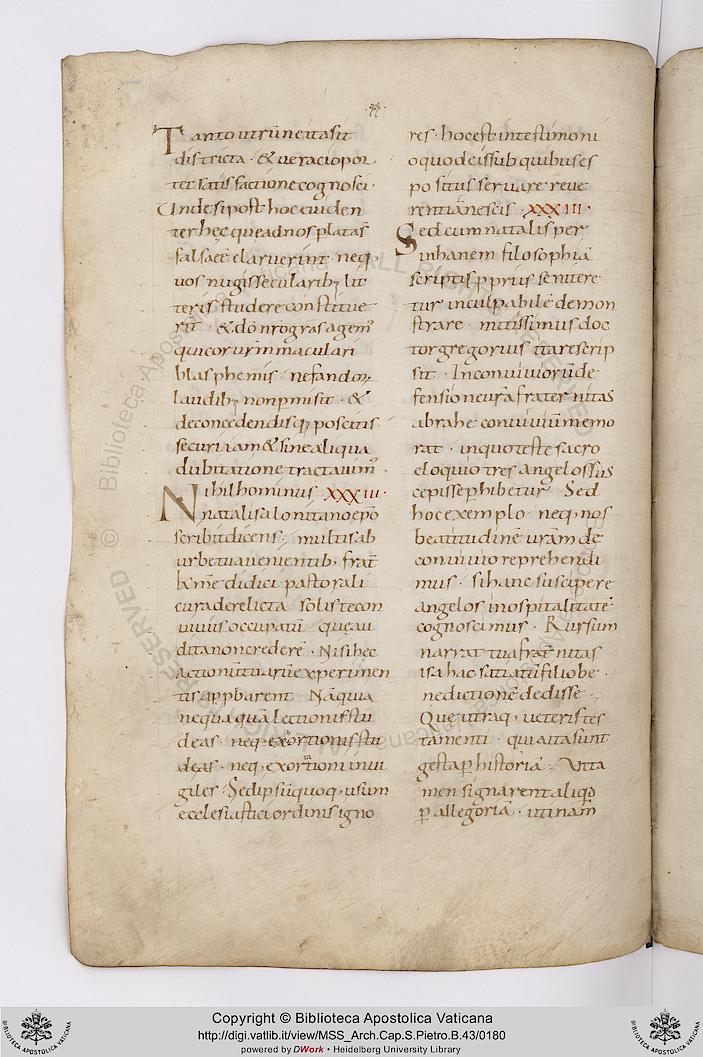 Tanto utrũneitasit
districta · & ueraciopor
tet satisfactionecognosci ·
Undesiposthoceuiden
terhęc quęadnosplatas̃
falsaeẽclaruerint · neq;
uos nugissecularib; lit
teris studere constitue
rit · &dõnrõgrãsagem̃
quicorurm̃maculari
blasphemiis nefandorꝝ
laudib; nonpmisit · &
deconcedendisq; poscitis
securi iam&sinealiqua
dubitatione tractauim̃ ·
Nihilhominus XXXIII ·
natalisalonitanoepõ
scribitdicens · multisab
urbetuauenientib; frat̃
km̃e didici pastorali
curaderelicta solistecon
uiuiisoccupatũ · quęau
ditanoncrederẽ · Nisihęc
actionũtuarũexperimen
tisapprobarent Nãquia
nequaquã lectionistu
deas · neq; exortionisstu
deas · neq; exortioni inui
giles · Sedipsũquoq; usum
ecclesiasticiordinisigno
res · hocestintestimoni
oquodeissubquibuses
positus seruare reue
rentiãnescis XXXIIII ·
Sedcumnatalisper
inhanem filosophiã
scriptisppriis seniterẽ
tur inculpabilẽ demon
strare · mitissimus doc
torgregorius itarescrip
sit · Inconuiuiorũde
fensioneurã frater nitas
abrahę conuiuiũmemo
rat · inquoteste sacro
eloquio tres angelossus
cepisse phibetur · Sed
hocexemplo · neq; nos
beatitudinẽ urãm de
conuiuio reprehendi
mus · si hanc suscipere
angelos inospitalitatẽ
cognoscimus · Rursum
narrat tuafrat̃nitas
isahac satiatũfiliobe
nedictionẽ dedisse ·
Quę utraq; ueteristes
tamenti · quiaitasunt
gesta phistoriã · Utta
men signarentaliqd
p allegoriã · utinam
Copyright © Biblioteca Apostolica Vaticana
http://digi.vatlib.it/view/MSS_Arch.Cap.S.Pietro.B.43/0180
powered by DWork • Heidelberg University Library